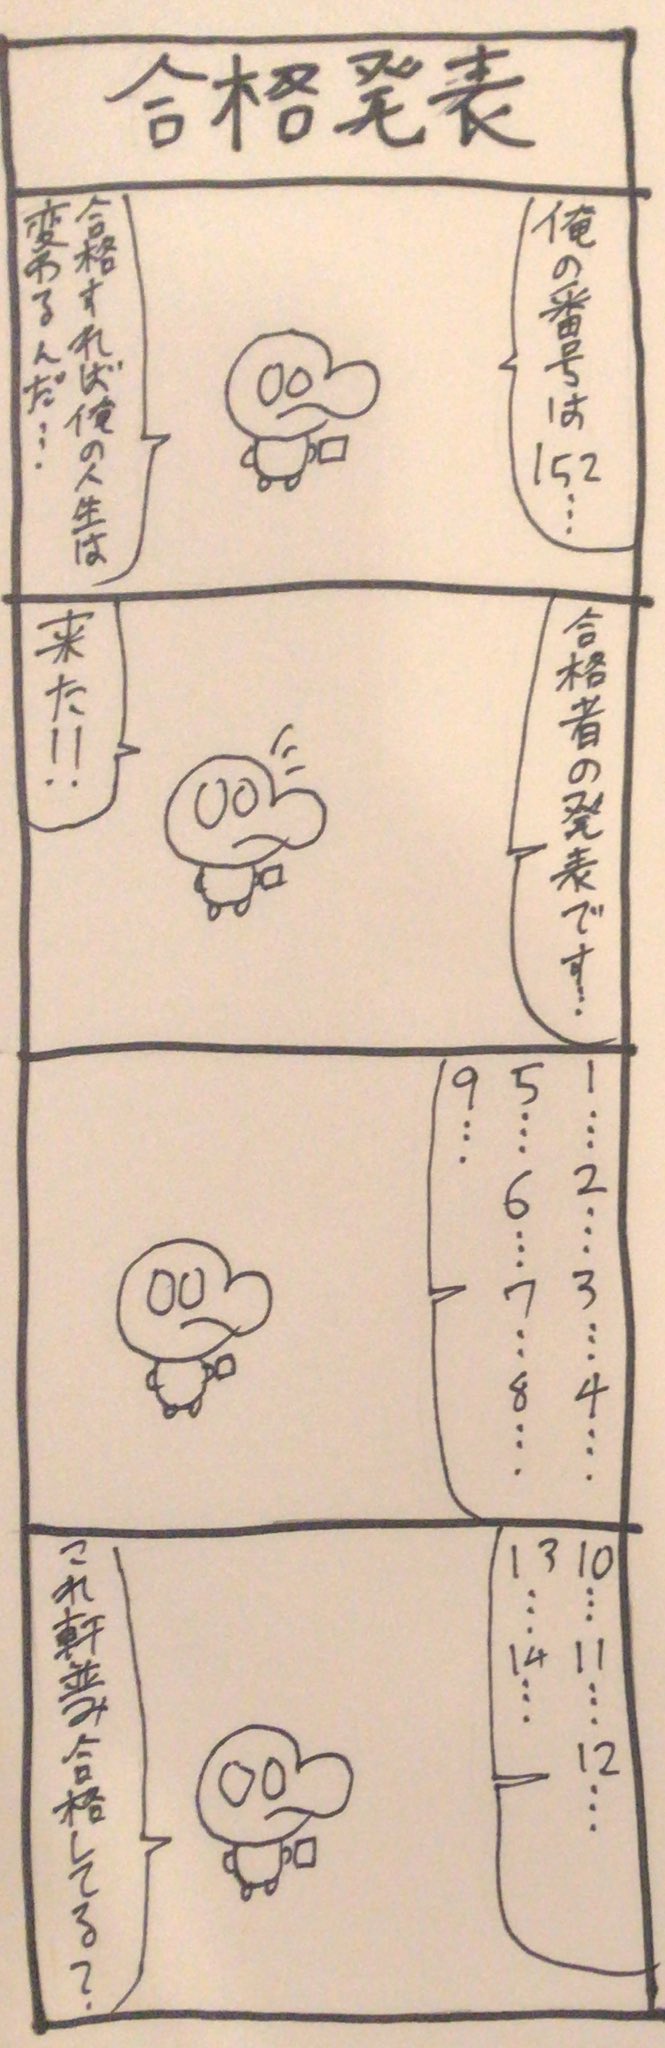 合格発表
俺の番号は
152…
合格すれば俺の人生は
変わるんだ…
合格者の発表です…
来た!!
1…2…3…4…
5…6…7…8…
9…
10…11…12…
13…14…
これ軒並み合格してる?